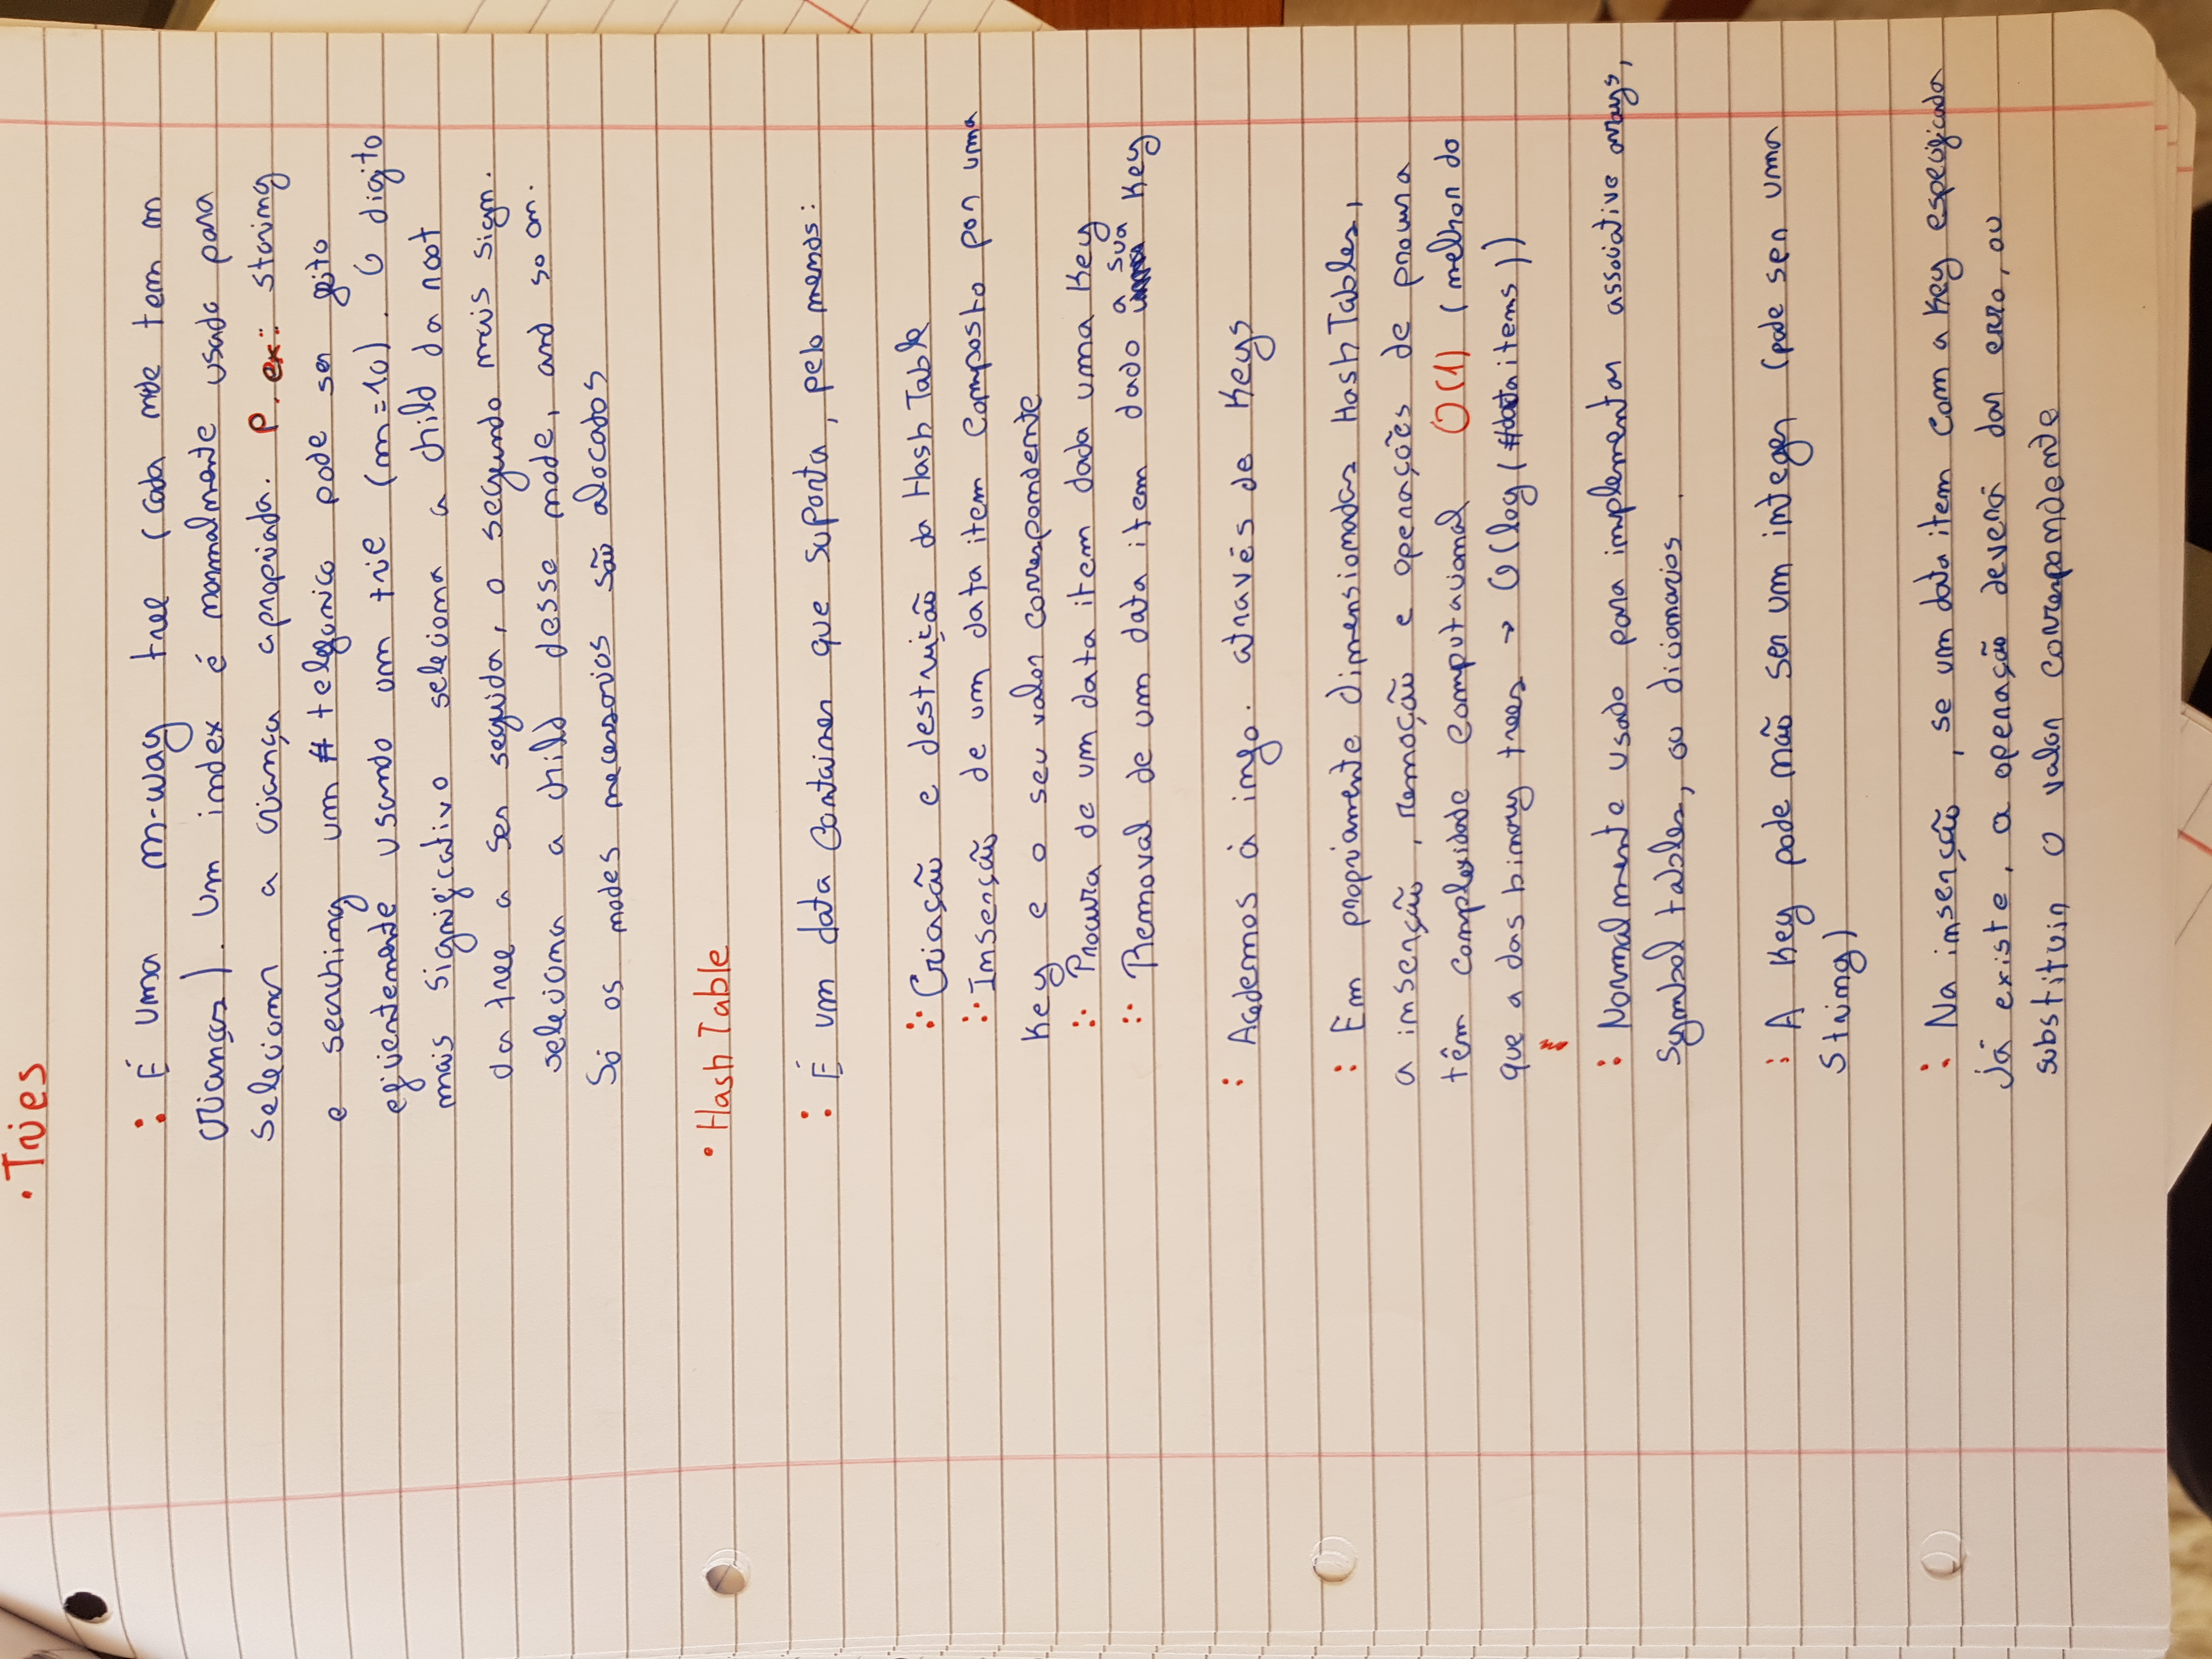 • Tries
: É uma m-way tree (cada node tem m
crianças). Um index é normalmente usado para
selecionar a criança apropriada. P. ex: storing
e searching um # telefonico pode ser feito
eficientemente usando um trie (m=10). O digito
mais significativo seleciona a child da root
da tree a ser seguida, o segundo mais sign.
seleciona a child desse node, and so on.
Só os nodes necessarios são alocados
• Hash Table
: É um data container que suporta, pelo menos:
:· Criação e destruição da Hash Table
:· Inserção de um data item composto por uma
Key e o seu valor correspondente
:· Procura de um data item dada uma Key
:· Removal de um data item dado a sua Key
: Acedemos à info. através de Keys
: Em propriamente dimensionadas Hash Tables,
a inserção, remoção e operações de procura
têm complexidade computacional O(1) (melhor do
que a das binary trees → O(log(#data items))
: Normalmente usado para implementar associative arrays,
symbol tables, ou dicionarios.
: A Key pode não ser um integer (pode ser uma
string)
: Na inserção, se um data item com a Key especificada
já existe, a operação deverá dar erro, ou
substituir o valor correspondente